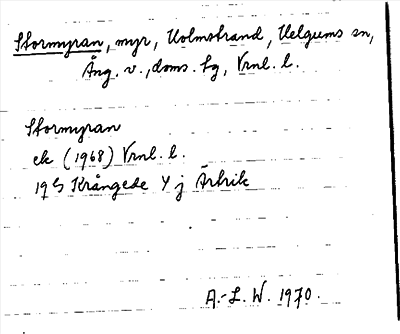 Stormyran, myr, Holmstrand, Helgums sn,
Ång. v., doms. sg, Vrnl. l.
Stormyran
ek (1968) Vrnl. l.
19 G Krångede Y j Ärtrik
A.-L. W. 1970.